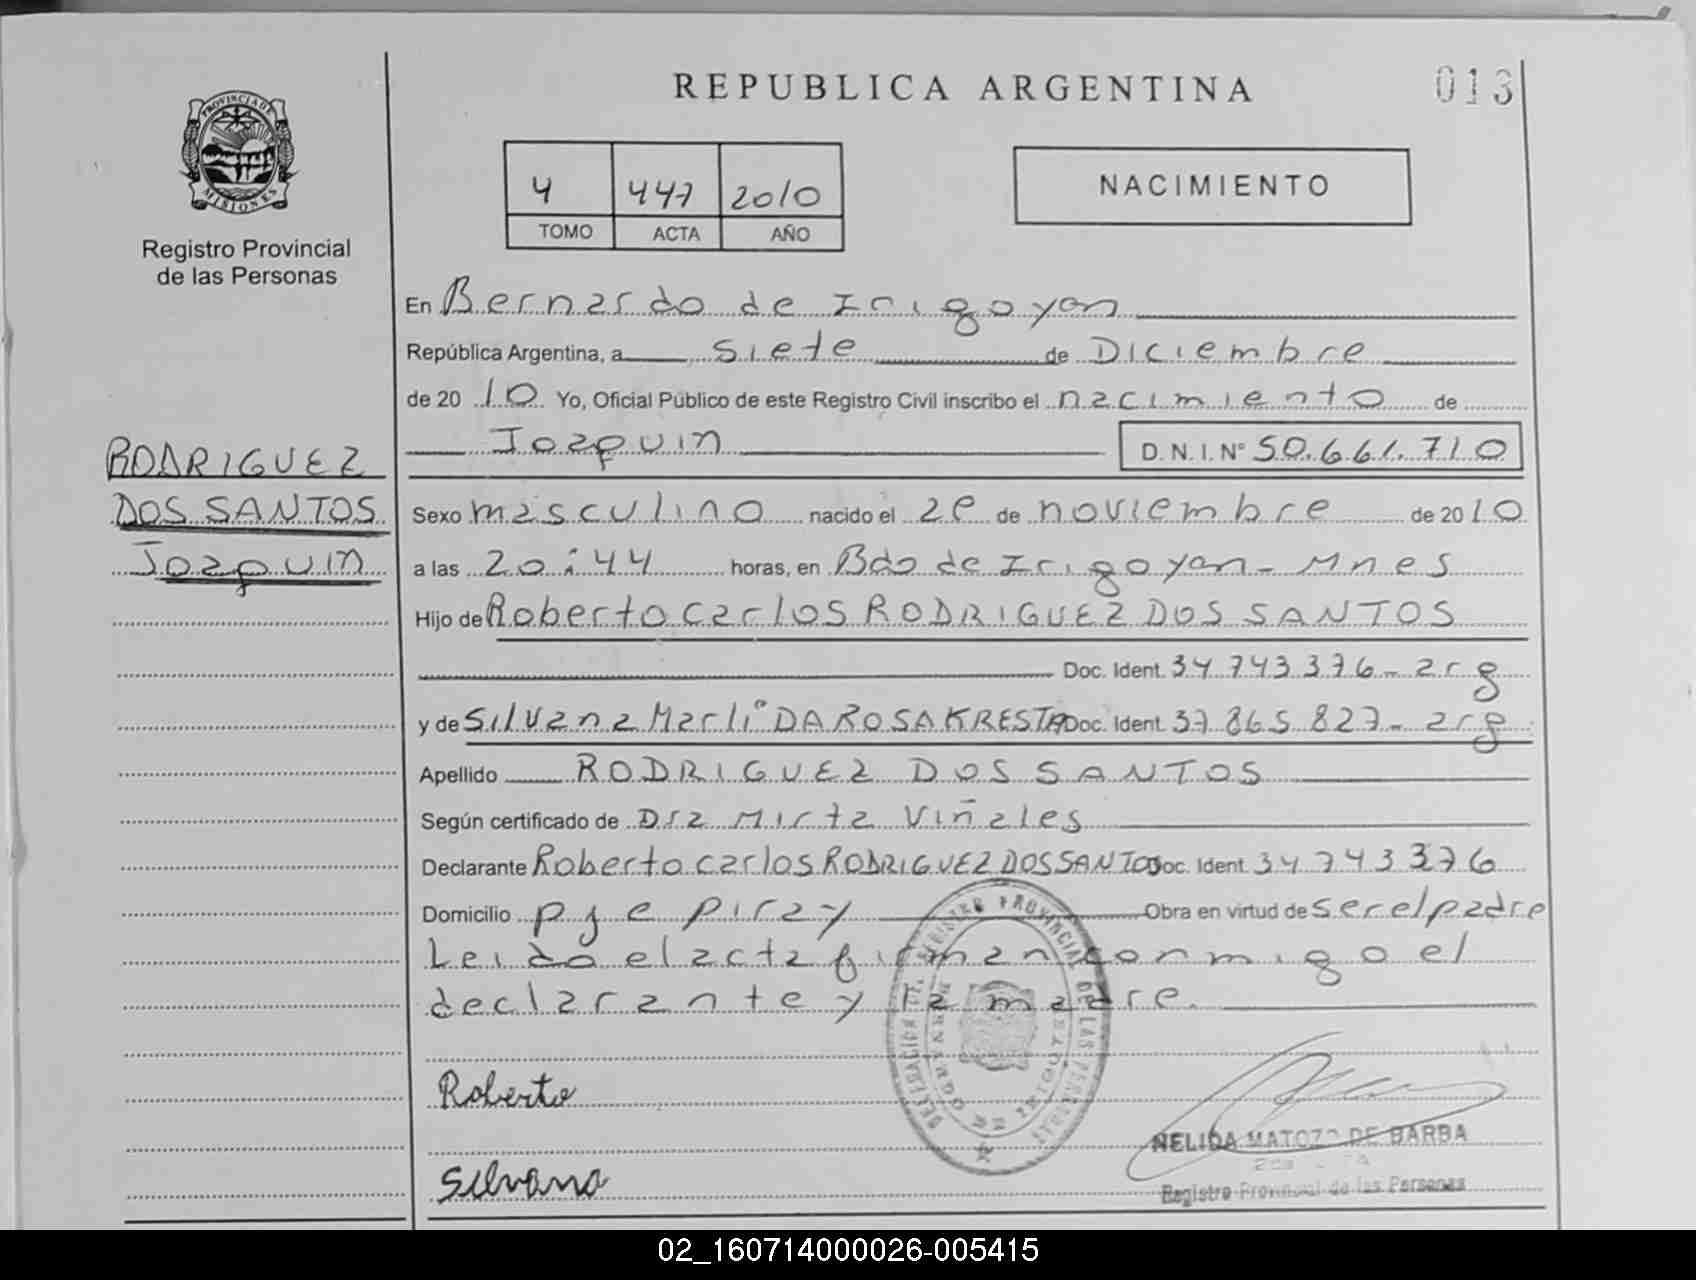 REPUBLICA ARGENTINA
013
PROVINCIA DE MISIONES
Registro Provincial
de las Personas
4 447 2010
TOMO ACTA AÑO
NACIMIENTO
En Bernardo de Irigoyen
República Argentina, a siete de Diciembre
de 2010 Yo, Oficial Público de este Registro Civil inscribo el nacimiento de
Joaquin D.N.I. N° 50.661.710
RODRIGUEZ
DOS SANTOS
Joaquin
Sexo masculino nacido el de noviembre de 2010
a las 20:44 horas, en Bdo de Irigoyen - Mnes
Hijo de Roberto carlos RODRIGUEZ DOS SANTOS
Doc. Ident. 34 743 376 - arg
y de Silvana Marli DA ROSA KRESTA Doc. Ident. 37 865 827 - arg
Apellido RODRIGUEZ DOS SANTOS
Según certificado de Dra Mirta Viñales
Declarante Roberto carlos RODRIGUEZ DOS SANTOS Doc. Ident. 34 743 376
Domicilio pje piray Obra en virtud de ser el padre
Leido el acta firman conmigo el
declarante y la madre.
Roberto
Silvana
NELIDA MATOZO DE BARBA
Registro Provincial de las Personas
02_160714000026-005415